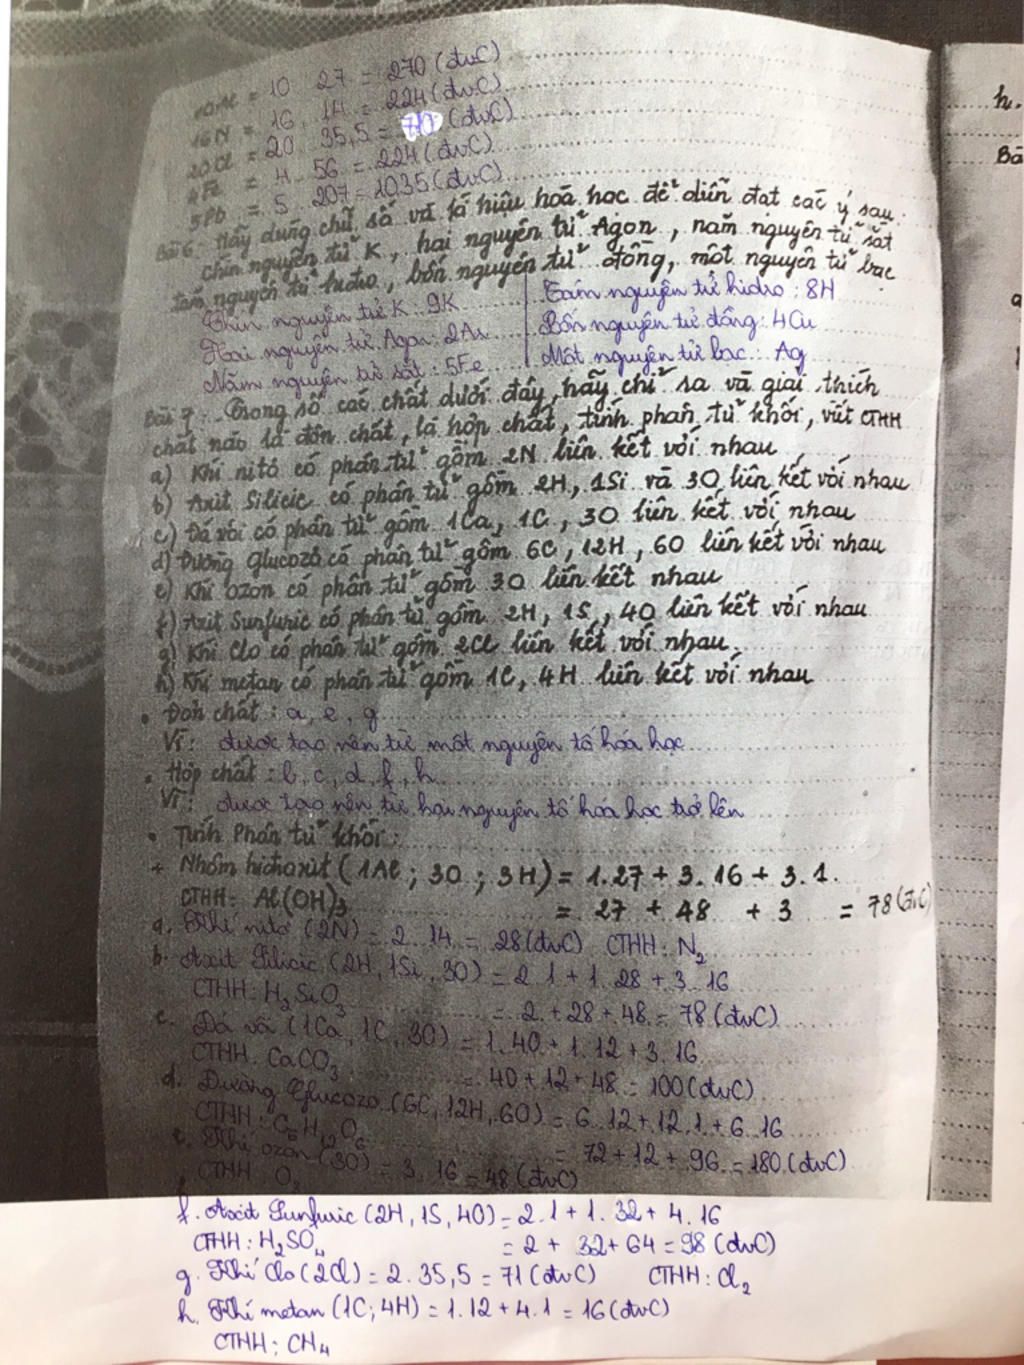 10Al = 10 . 27 = 270 (đvC)
16N = 16 . 14 = 224 (đvC)
20Cl = 20 . 35,5 = (đvC)
4Fe = 4 . 56 = 224 (đvC)
5Pb = 5 . 207 = 1035 (đvC)
Bài 6: Hãy dùng chữ số và kí hiệu hoá học để diễn đạt các ý sau:
chín nguyên tử K, hai nguyên tử Agon, năm nguyên tử sắt
tám nguyên tử hiđro, bốn nguyên tử đồng, một nguyên tử bạc
Chín nguyên tử K: 9K
Hai nguyên tử Agon: 2Ar
Năm nguyên tử sắt: 5Fe
Tám nguyên tử hidro: 8H
Bốn nguyên tử đồng: 4Cu
Một nguyên tử bạc: Ag
Bài 7: Trong số các chất dưới đây, hãy chỉ ra và giải thích
chất nào là đơn chất, là hợp chất, tính phân tử khối, viết CTHH
a) Khí nitơ có phân tử gồm 2N liên kết với nhau
b) Axit Silicic có phân tử gồm 2H, 1Si và 3O liên kết với nhau
c) Đá vôi có phân tử gồm 1Ca, 1C, 3O liên kết với nhau
d) Đường Glucozơ có phân tử gồm 6C, 12H, 6O liên kết với nhau
e) Khí ozon có phân tử gồm 3O liên kết nhau
f) Axit Sunfuric có phân tử gồm 2H, 1S, 4O liên kết với nhau
g) Khí Clo có phân tử gồm 2Cl liên kết với nhau
h) Khí metan có phân tử gồm 1C, 4H liên kết với nhau
• Đơn chất: a, e, g
Vì: được tạo nên từ một nguyên tố hóa học
• Hợp chất: b, c, d, f, h
Vì: được tạo nên từ hai nguyên tố hóa học trở lên
• Tính Phân tử khối:
+ Nhôm hiđroxit (1Al; 3O; 3H) = 1.27 + 3.16 + 3.1
CTHH: Al(OH)3 = 27 + 48 + 3 = 78 (đvC)
a. Khí nitơ (2N) = 2 . 14 = 28 (đvC) CTHH: N2
b. Axit Silicic (2H, 1Si, 3O) = 2.1 + 1.28 + 3.16
CTHH: H2SiO3 = 2 + 28 + 48 = 78 (đvC)
c. Đá vôi (1Ca, 1C, 3O) = 1.40 + 1.12 + 3.16
CTHH: CaCO3 = 40 + 12 + 48 = 100 (đvC)
d. Đường Glucozo (6C, 12H, 6O) = 6.12 + 12.1 + 6.16
CTHH: C6H12O6 = 72 + 12 + 96 = 180 (đvC)
e. Khí ozon (3O) = 3.16 = 48 (đvC)
CTHH O3
f. Axit Sunfuric (2H, 1S, 4O) = 2.1 + 1.32 + 4.16
CTHH: H2SO4 = 2 + 32 + 64 = 98 (đvC)
g. Khí Clo (2Cl) = 2.35,5 = 71 (đvC) CTHH: Cl2
h. Khí metan (1C; 4H) = 1.12 + 4.1 = 16 (đvC)
CTHH: CH4
h.
Bà